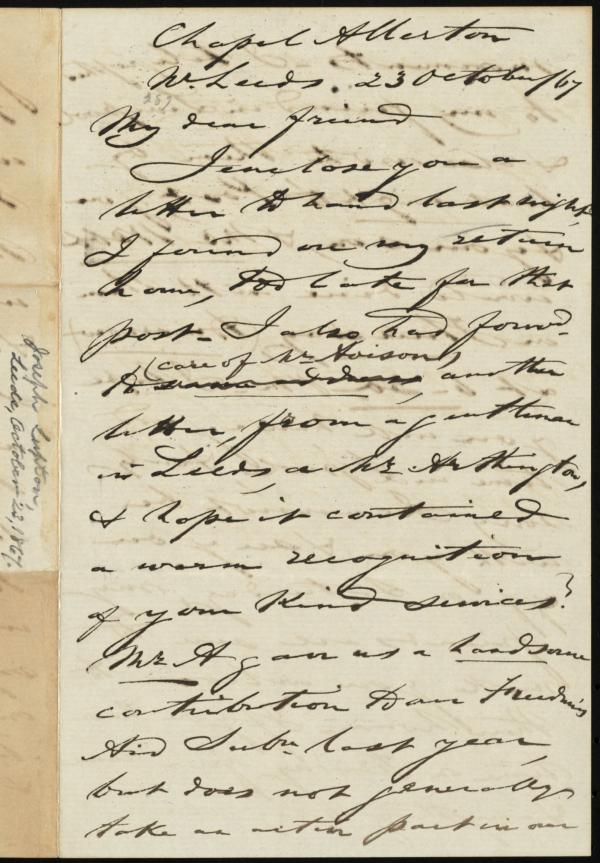 Chapel Allerton
Nr. Leeds. 23 October/67
My dear friend
I enclose you a
letter to hand last night,
I found on my return
home, too late for that
post - I also had forwd.
(care of Mr.
to same address, another
letter, from a gentleman
in Leeds, a Mr. Arthington,
& hope it contained
a warm recognition
of your kind services?
Mr. A gave us a handsome
contribution to our Freedmen's
Aid Subn. last year,
but does not generally
take an active part in our
Joseph Lupton,
Leeds, October 23, 1867.